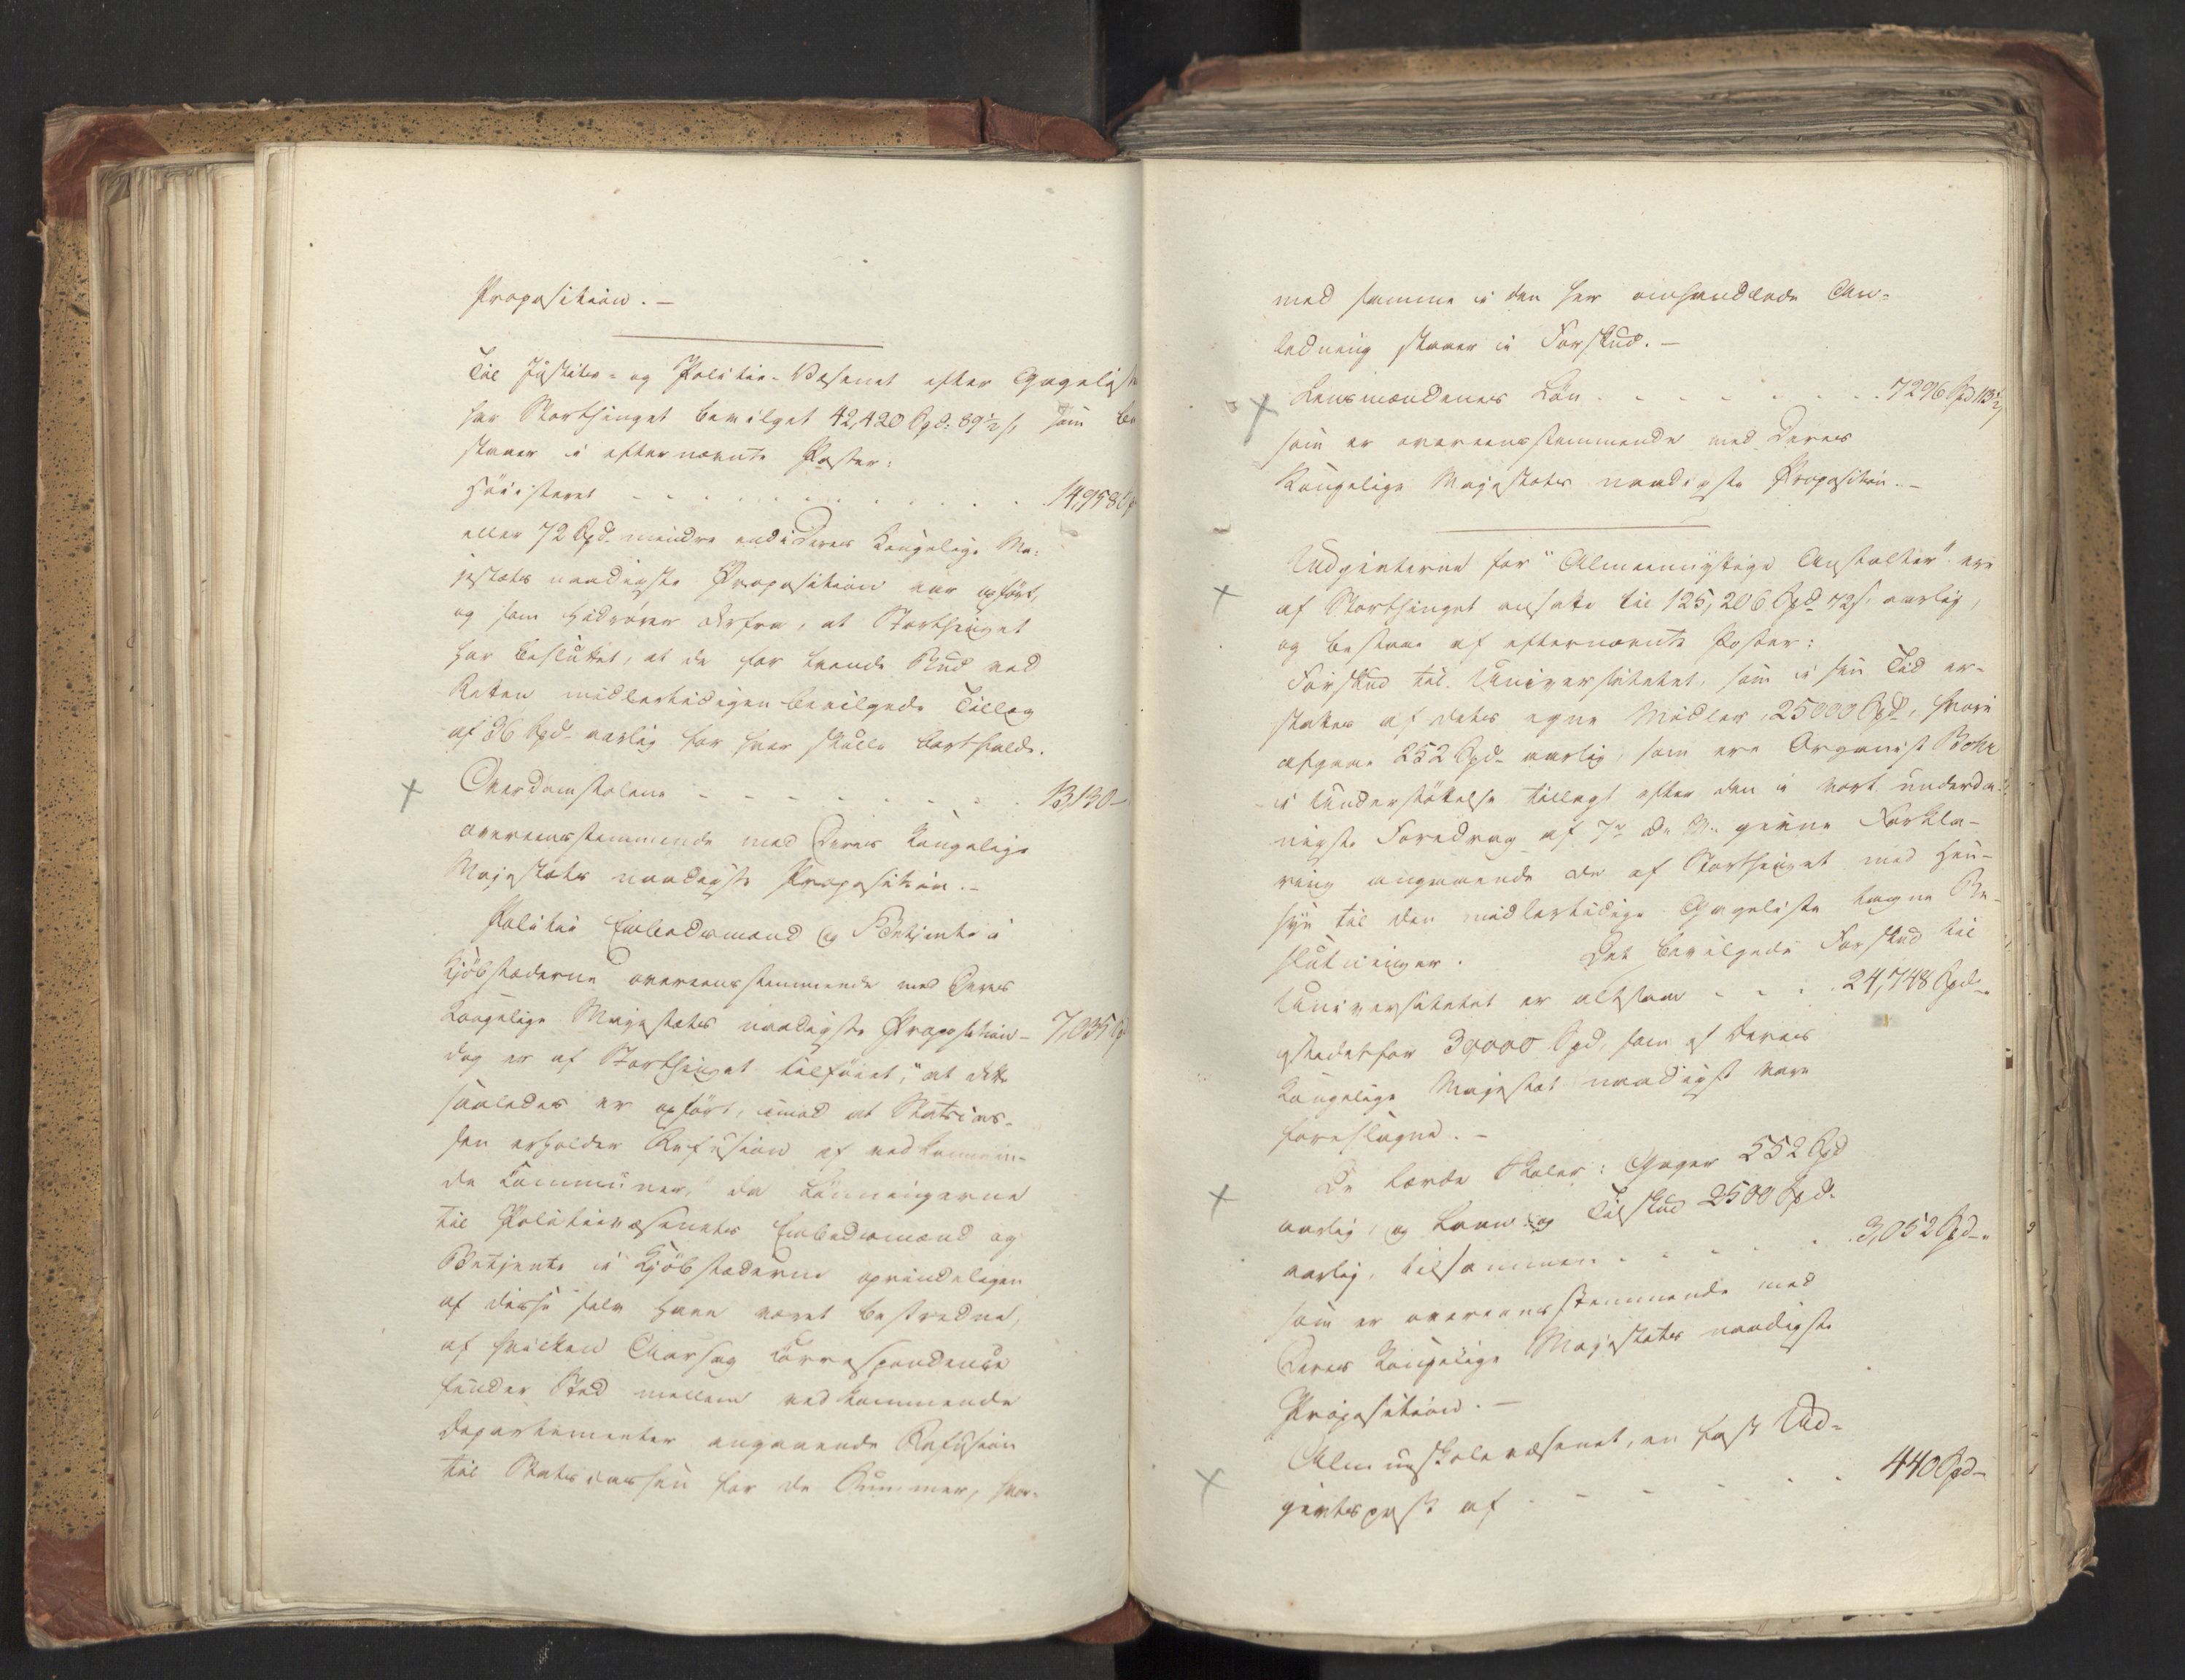 Proposition. –
Til Justits- og Politie-Væsenet efter Gagelist
har Storthinget bevilget 42,420 Spd. 89½ s, som be
staaer i efternævnte Poster:
Höiesteret - - - - - - - - 14,958
eller 72 Spd. mindre end i Deres Kongelige Ma-
jestæts naadigste Proposition var opført,
og som hidrører derfra, at Storthinget
har besluttet, at de for tvende Bud ved
Retten midlertidigen bevilgede Tillæg
af 36 Spd. aarlig for hver skulle bortfalde.
Overdomstolene - - - - - - - 13130 -
overeensstemmende med Deres Kongelige
Majestæts naadigste Proposition. -
Politie Embedsmænd og Betjente i
Kjöbstæderne overeensstemmende med Deres
Kongelige Majestæts naadigste Proposition - 7,035
dog er af Storthinget tilføiet, "at dette
saaledes er opført, imod at Statscas-
sen erholder Refusion af vedkommen-
de Kommuner," da Lønningerne
til Politievæsenets Embedsmænd og
Betjente i Kjöbstæderne oprindeligen
af disse selv have været bestredne,
af hvilken Aarsag Correspondence
finder Sted mellem vedkommende
Departementer angaaende Refusion
til Statscassen for de Summer, hvor-
med samme i den her omhandlede An-
ledning staaer i Forskud. –
Lensmændenes Løn - - - - - - - 7296 Spd 113½
som er overeensstemmende med Deres
Kongelige Majestæts naadigste Proposition. –
Udgivterne for "Almeennyttige Anstalter" ere
af Storthinget ansatte til 125,206 Spd 72 s. aarlig,
og bestaae af efternævnte Poster:
Forskud til Universitetet, som i sin Tid er-
stattes af dets egne Midler, 25000 Spd, hvori
afgaae 252 Spd aarlig, som ere Organist Bohr
i Understøttelse tillagt efter den i vort underda-
nigste Foredrag af 7de ds. M. givne Forkla-
ring angaaende de af Storthinget med Hen-
syn til den midlertidige Gageliste tagne Be-
slutninger. Det bevilgede Forskud til
Universitetet er altsaa - - - 24,748 Spd.
istedetfor 30,000 Spd, som af Deres
Kongelige Majestæt naadigst vare
foreslagne. –
De lærde Skoler: Gager 552 Spd
aarlig, og Laan og Tilskud 2500 Spd.
aarlig, tilsammen - - - - - 3,052 Spd -
som er overeensstemmende med
Deres Kongelige Majestæts naadigste
Proposition. –
Almueskolevæsenet, en fast Ud-
givtspost af - - - - - - 440 Spd -